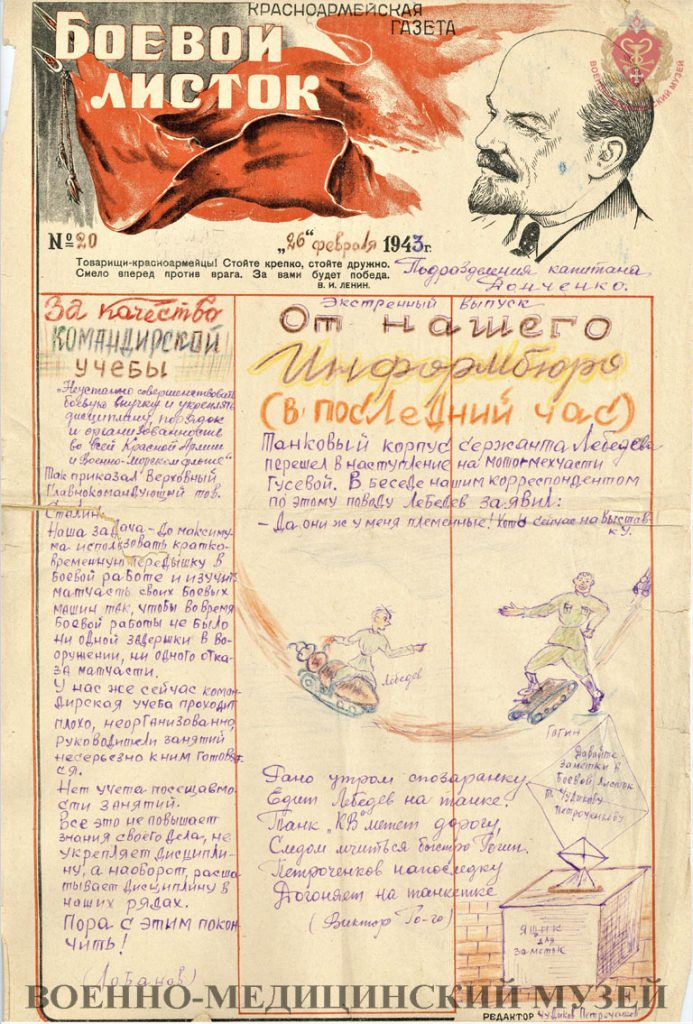 КРАСНОАРМЕЙСКАЯ
ГАЗЕТА
БОЕВОЙ
ЛИСТОК
ВОЕННО-МЕДИЦИНСКИЙ МУЗЕЙ
№ 20
„26“ февраля 1943 г.
Товарищи-красноармейцы! Стойте крепко, стойте дружно.
Смело вперед против врага. За вами будет победа.
В. И. ЛЕНИН.
Подразделения капитана
Данченко.
Экстренный выпуск
За качество
КОМАНДИРСКОЙ
УЧЕБЫ
„Неустанно совершенствовать
боевую выучку и укреплять
дисциплину, порядок
и организованность
во всей Красной Армии
и Военно-Морском флоте“
Так приказал Верховный
Главнокомандующий тов.
Сталин.
Наша задача - до максиму-
ма использовать кратко-
временную передышку в
боевой работе и изучить
матчасть своих боевых
машин так, чтобы во время
боевой работы не было
ни одной задержки в во-
оружении, ни одного отка-
за матчасти.
У нас же сейчас коман-
дирская учеба проходит
плохо, неорганизованно,
руководители занятий
несерьезно к ним готовят-
ся.
Нет учета посещаемо-
сти занятий.
Все это не повышает
знания своего дела, не
укрепляет дисципли-
ну, а наоборот, расша-
тывает дисциплину в
наших рядах.
Пора с этим покон-
чить!
(Лобанов)
От нашего
Информбюро
(в последний час)
Танковый корпус сержанта Лебедева
перешел в наступление на мотомехчасти
Гусевой. В беседе нашим корреспондентом
по этому поводу Лебедев заявил:
- Да они ж у меня племенные! Хоть сейчас на выстав-
ку.
Лебедев
Гогин
Рано утром спозаранку
Едит Лебедев на танке.
Танк „КВ“ метет дорогу,
Следом мчиться быстро Гогин.
Петроченков напоследку
Догоняет на танкетке
(Виктор Го-го)
Давайте
заметки в
Боевой листок
т. Чудикову
Петроченкову
ЯЩИК
для
заметок
ВОЕННО-МЕДИЦИНСКИЙ МУЗЕЙ
РЕДАКТОР Чудиков Петроченков